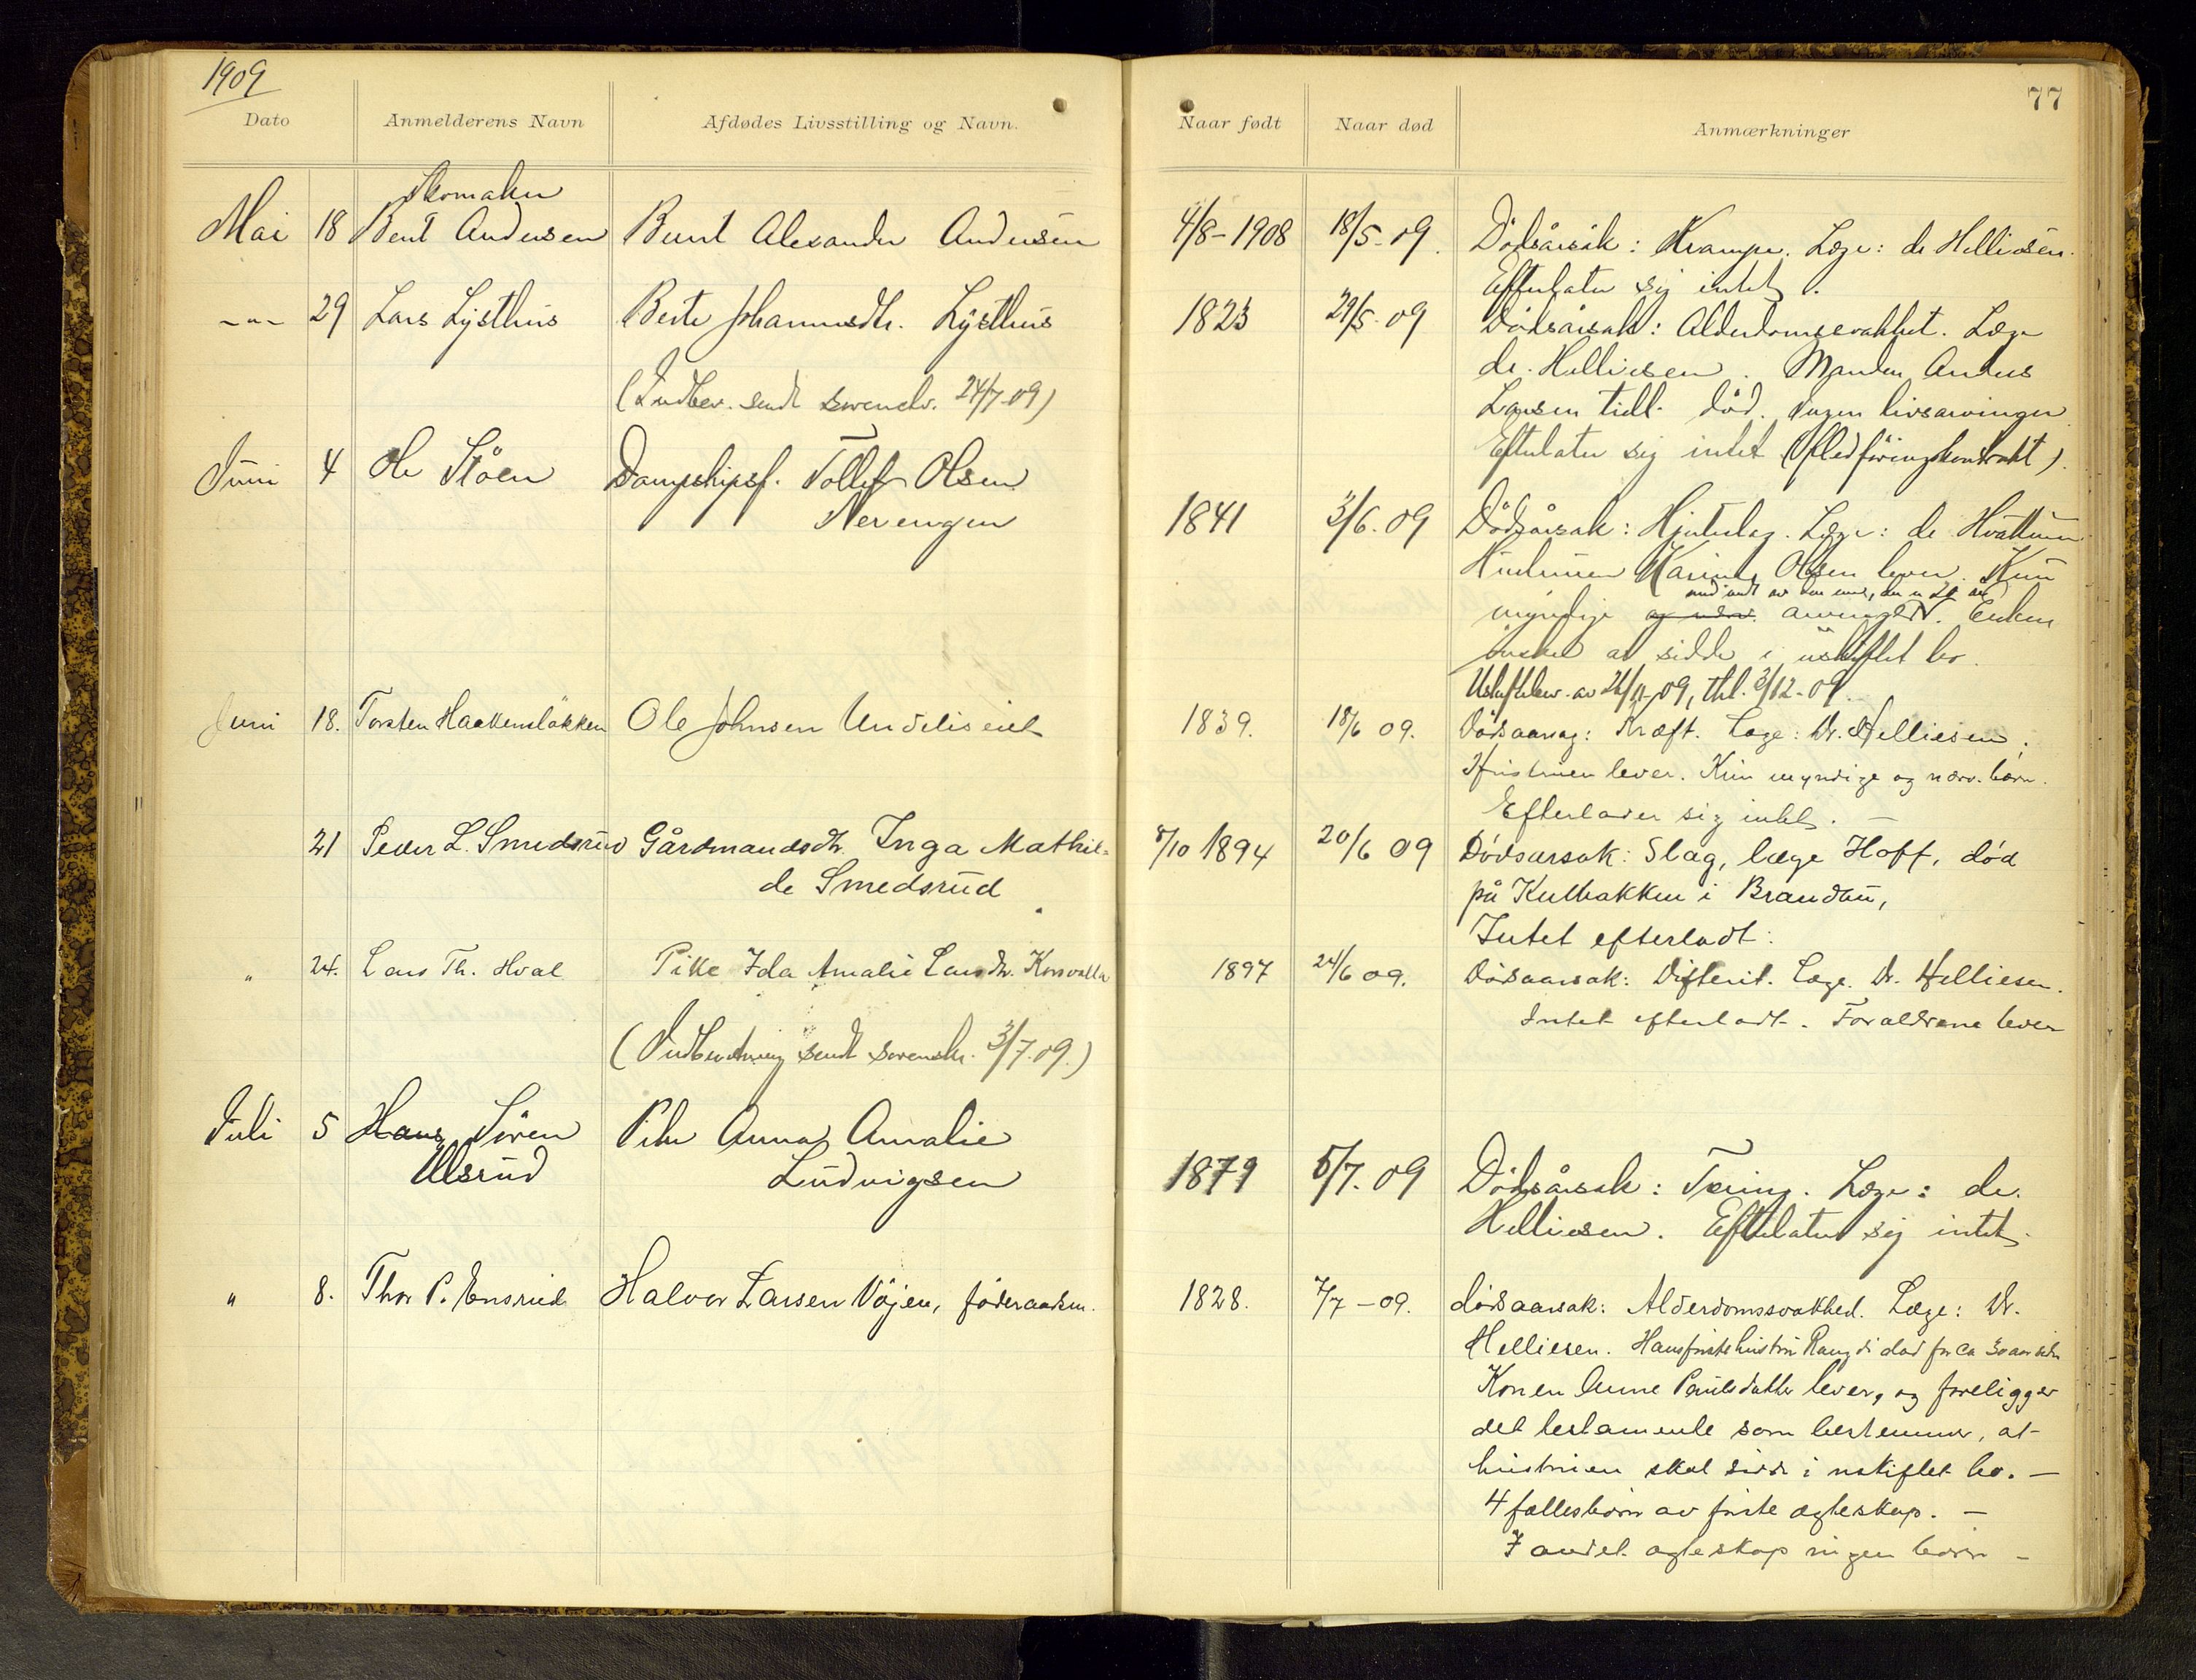 1909
77
Dato Anmelderens Navn Afdødes Livsstilling og Navn. Naar født Naar død Anmærkninger
Skomaker
Mai 18 Bent Andersen Bernt Alexander Andersen 4/8-1908 18/5-09. Dödsårsak: Krampe. Læge: dr Helliesen.
Efterlater sig intet.
-"- 29 Lars Lysthus Berte Johannesdtr. Lysthus 1823 29/5-09 Dödsårsak: Alderdomssvakhet. Læge
dr. Helliesen. Manden Anders
(Indber. sendt sorenskr. 24/7-09) Larsen tidl. död. Ingen livsarvinger
Efterlater sig intet (Fledföringskontrakt).
Juni 4 Ole Stöen Dampskipsf. Tollef Olsen
Nerengen 1841 3/6.09 Dödsårsak: Hjerteslag. Læge: dr Hvattum
Hustruen Karine Olsen lever. Kun
myndige og nærv. arvinger. Enken
önsker at sidde i uskiftet bo.
Uskiftebev. av 26/11-09, thl. 3/12-09.
Juni 18. Torsten Haakenslökken Ole Johnsen Undeliseiet 1839. 18/6 09. Dödsaarsag: Kræft. Læge: Dr. Helliesen.
Hustruen lever. Kun myndige og nærv. børn.
Efterlader sig intet. —
21 Peder L. Smedsrud Gårdmandsdtr. Inga Mathil=
de Smedsrud 8/10 1894 20/6 09 Dödsarsak: Slag, læge Hoff, död
på Kulbakken i Brandbu,
Intet efterladt.
" 24. Lars Th. Hval Pike Ida Amalie Larsdtr. Korsvolla 1897 24/6 09. Dödsaarsak: Difterit. Læge. Dr. Helliesen.
Intet efterladt. Forældrene lever
(Indberetning sendt sorenskr. 3/7.09.)
Juli 5 Hans Sören
Ulsrud Pike Anna Amalie
Ludvigsen 1879 5/7.09 Dödsårsak: Tæring. Læge: dr.
Helliesen. Efterlater sig intet.
" 8. Thor P. Ensrud Halvor Larsen Vöjen, föderaadsm. 1828. 7/7-09. dödsaarsak: Alderdomssvakhed. Læge: Dr.
Helliesen. Hans förste hustru Rangdi död for ca 30 aar siden
Konen Anne Paulsdatter lever, og foreligger
det testamente som bestemmer, at
hustruen skal sidde i uskiftet bo. —
4 fællesbörn av förste ægteskap. —
I andet ægteskap ingen börn —